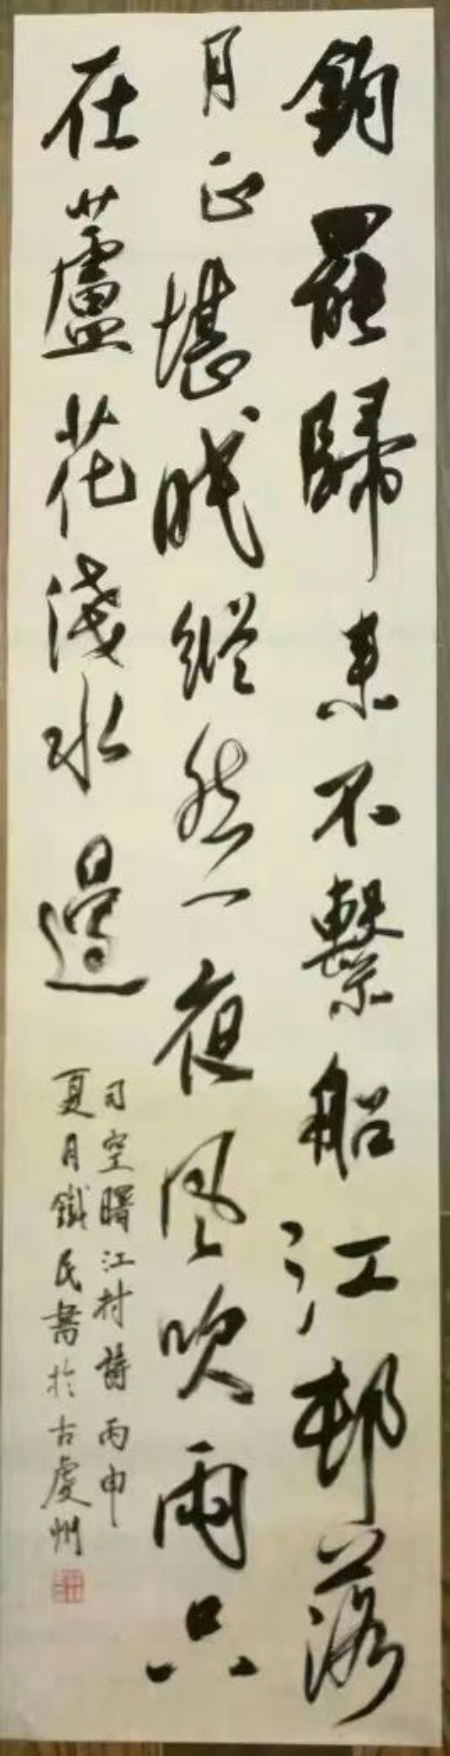 釣罷歸來不繫船江邨落
月正堪眠縱然一夜風吹雨只
在蘆花淺水邊
司空曙江村詩丙申
夏月鐵民書於古虔州